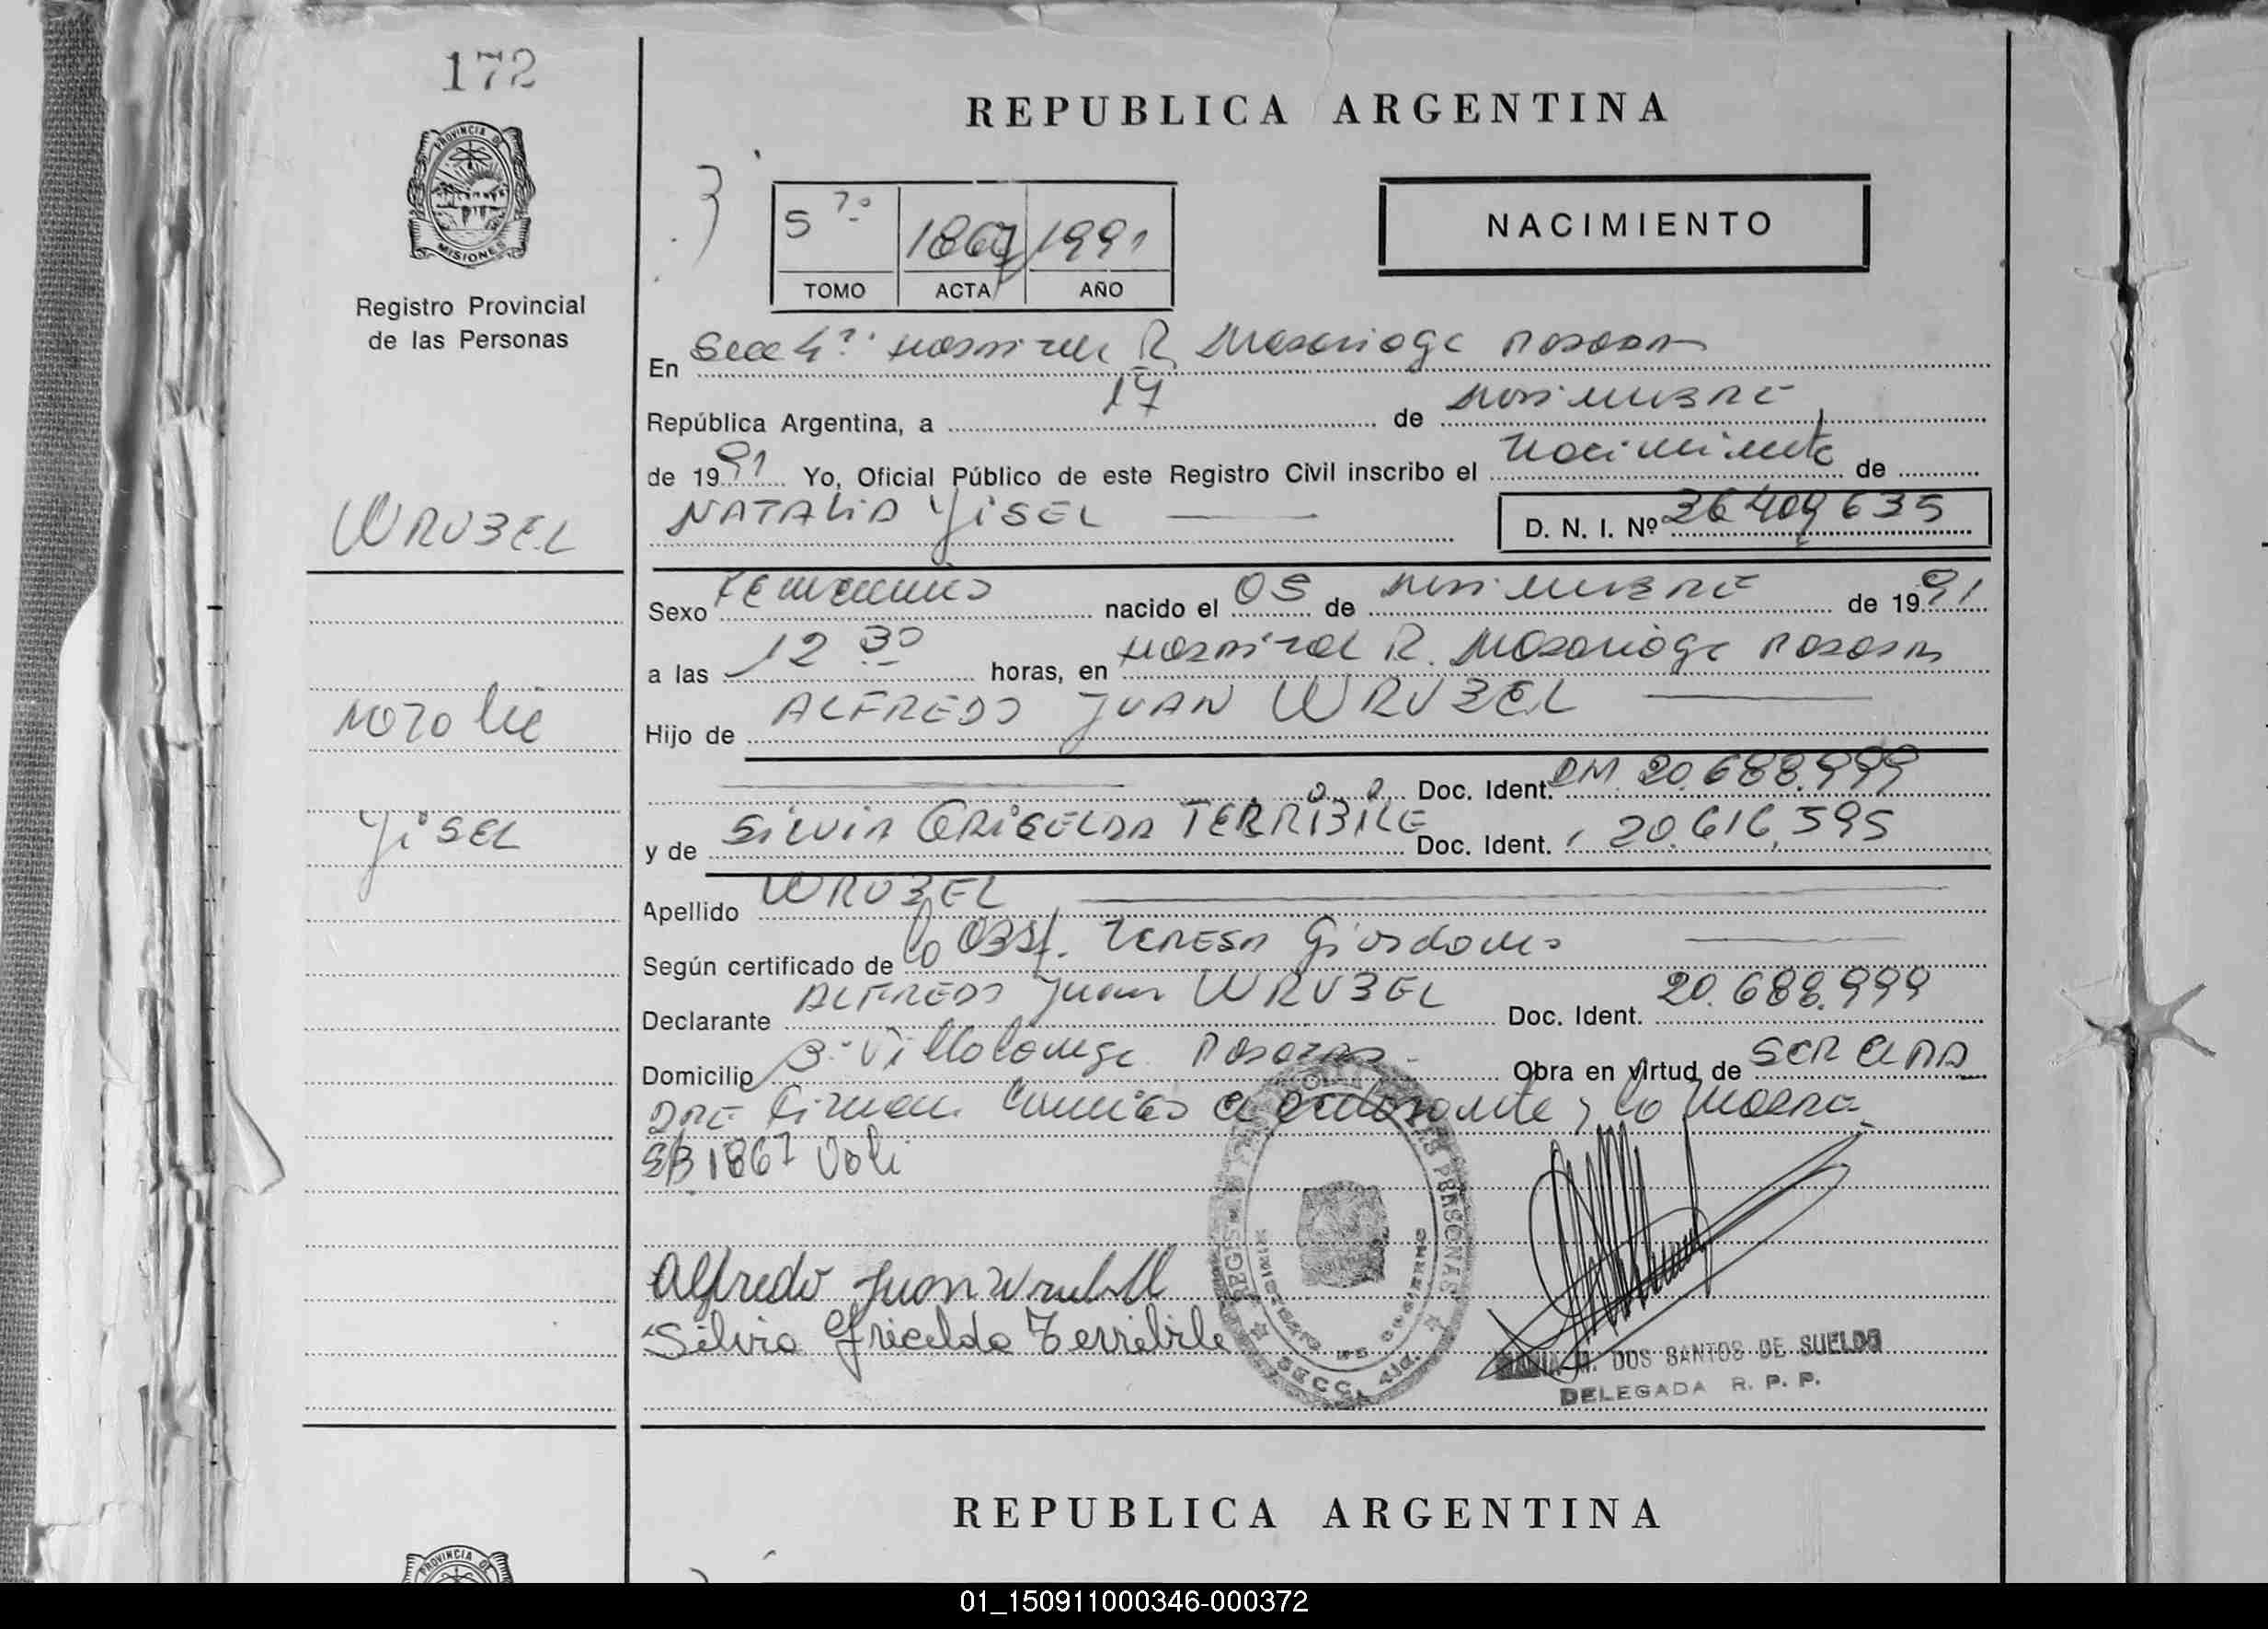 172
REPUBLICA ARGENTINA
PROVINCIA DE
MISIONES
Registro Provincial
de las Personas
NACIMIENTO
5 7º 1867 1991
TOMO ACTA AÑO
En Secc 4ª Hospital R Madariaga Posadas
República Argentina, a 17 de Noviembre
de 1991 Yo, Oficial Público de este Registro Civil inscribo el Nacimiento de
WRUBEL
NATALIA YISEL
D. N. I. Nº 36409635
Sexo Femenino nacido el 05 de Noviembre de 1991
a las 12 30 horas, en Hospital R. Madariaga Posadas
Natalia
Hijo de ALFREDO JUAN WRUBEL
Doc. Ident. DM. 20.688.999
YISEL
y de SILVIA GRISELDA TERRIBILE Doc. Ident. 20.616.595
Apellido WRUBEL
Según certificado de la OBST. TERESA Giordano
Declarante ALFREDO Juan WRUBEL Doc. Ident. 20.688.999
Domicilio Bº Villalonga Posadas Obra en virtud de SER EL PA
DRE Firman conmigo el declarante y la Madre
S/B 1867 Vale
Alfredo Juan Wrubell
Silvia Gricelda Terribile
PERSONAS
MINISTERIO DE GOBIERNO
SECC. 4ta.
MARIA M. DOS SANTOS DE SUELDO
DELEGADA R. P. P.
REPUBLICA ARGENTINA
PROVINCIA DE
01_150911000346-000372